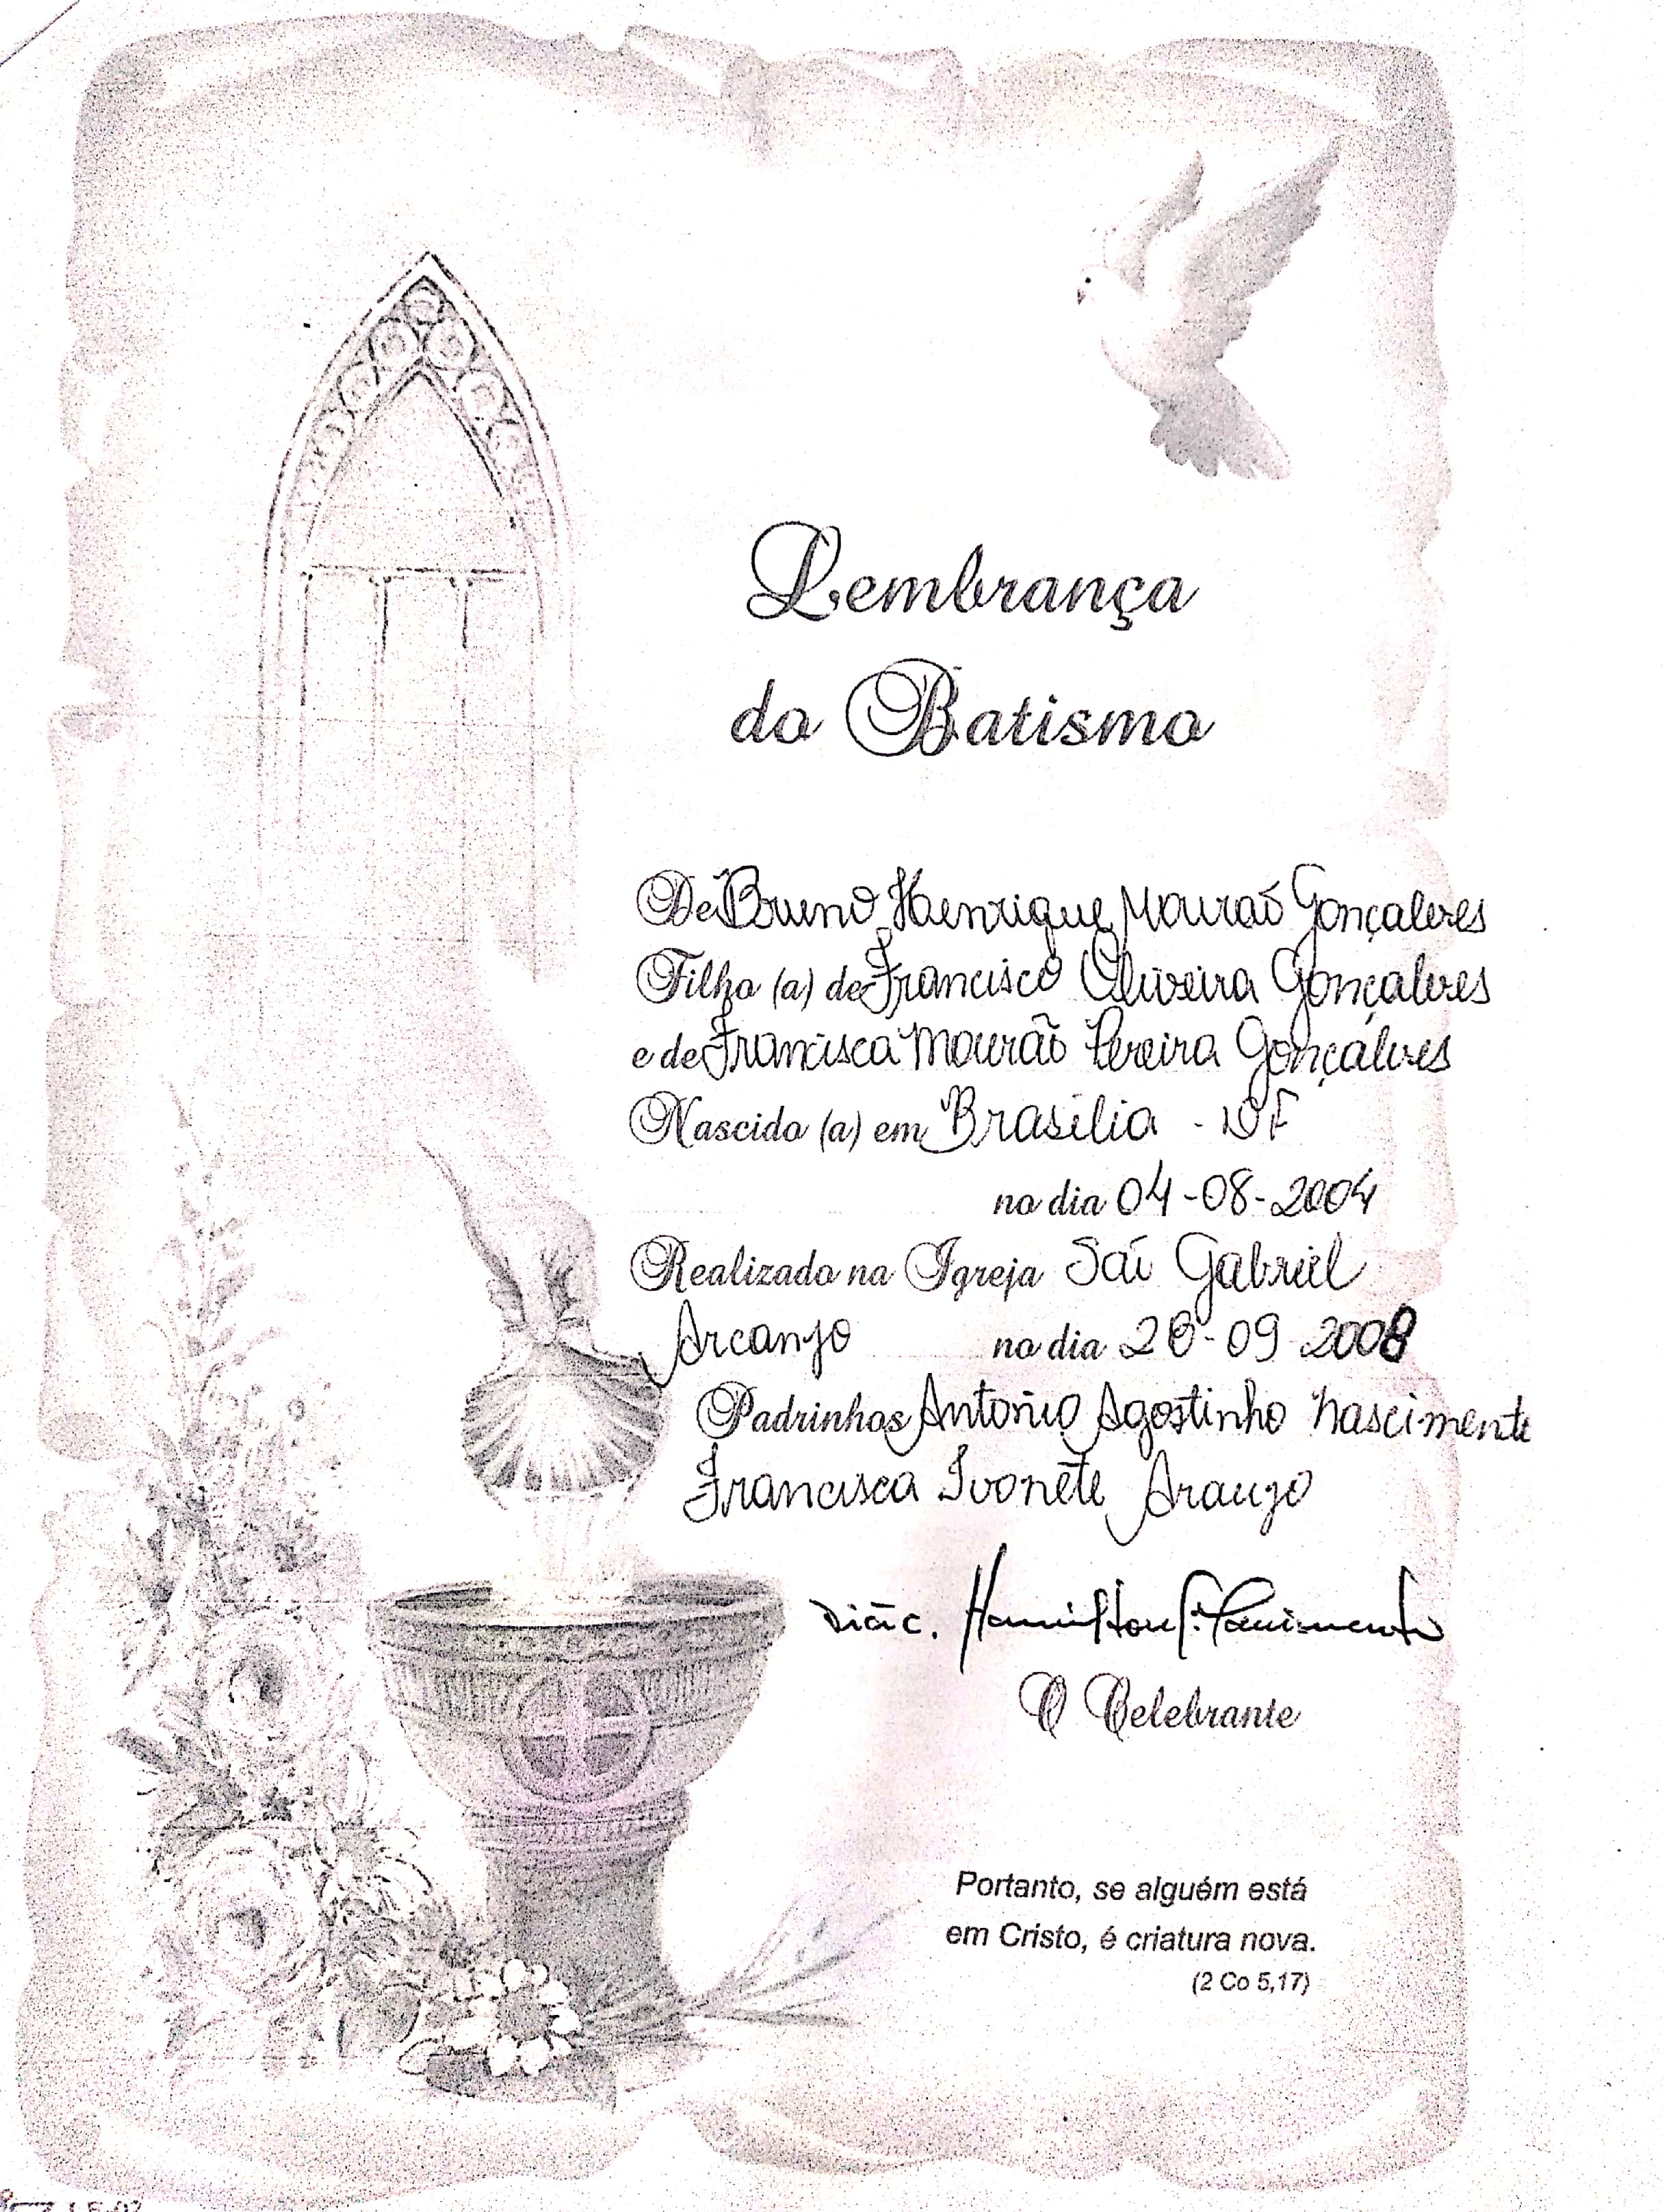 Lembrança
do Batismo
De Bruno Henrique Mourão Gonçalves
Filho (a) de Francisco Oliveira Gonçalves
e de Francisca Mourão Pereira Gonçalves
Nascido (a) em Brasilia - DF
no dia 04-08-2004
Realizado na Igreja São Gabriel
Arcanjo no dia 28-09-2008
Padrinhos Antonio Agostinho Nascimento
Francisca Ivonete Araujo
Diác. Hamilton
O Celebrante
Portanto, se alguém está
em Cristo, é criatura nova.
(2 Co 5,17)